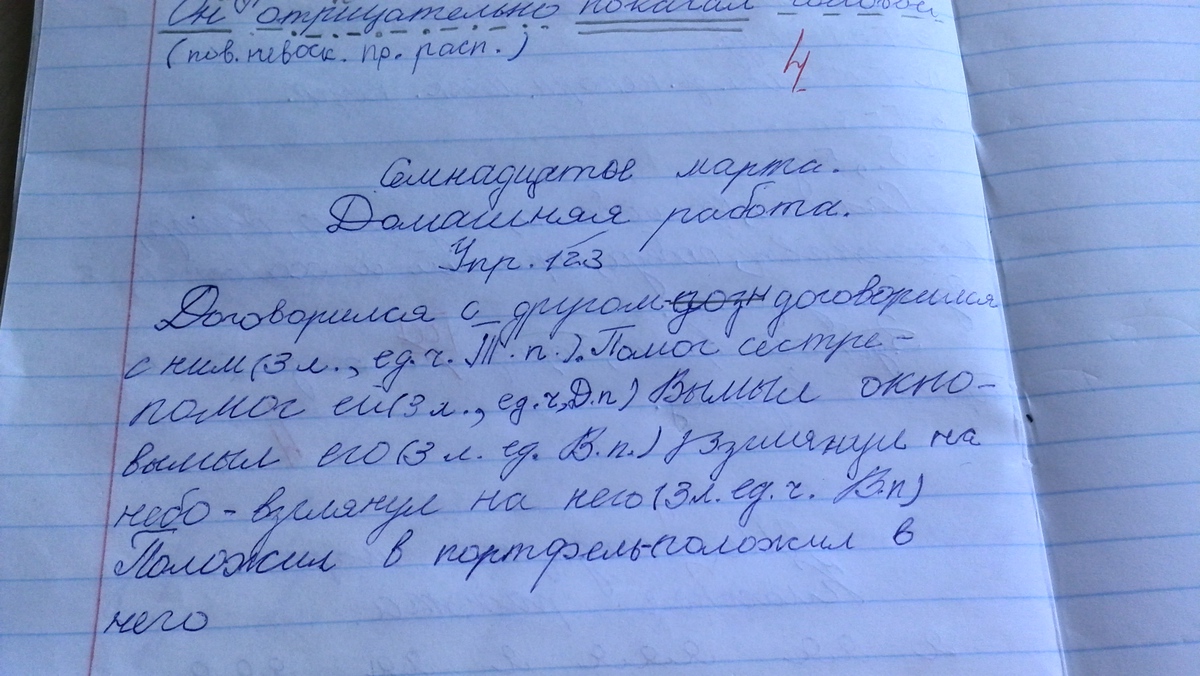 Он отрицательно покачал головой
(пов. невоск. пр. расп.)
4
Семнадцатое марта.
Домашняя работа.
Упр. 123
Договорился с другом- договорился
с ним (3 л., ед.ч. Т.п.). Помог сестре-
помог ей (3 л., ед.ч, Д.п) Вымыл окно-
вымыл его (3 л. ед. В.п.) Взглянул на
небо - взглянул на него (3 л. ед. ч. В.п)
Положил в портфель-положил в
него